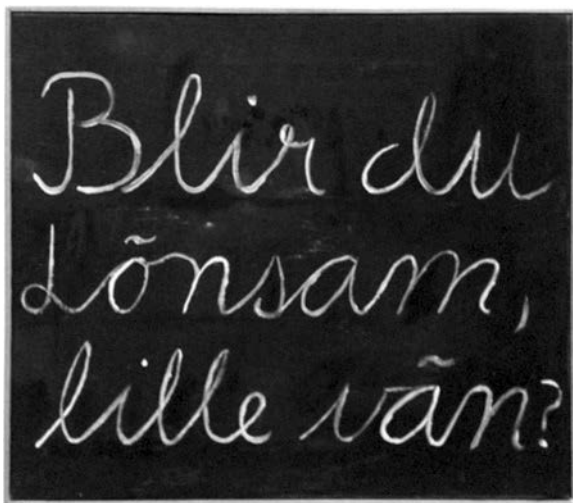 Blir du
Lönsam,
lille vän?